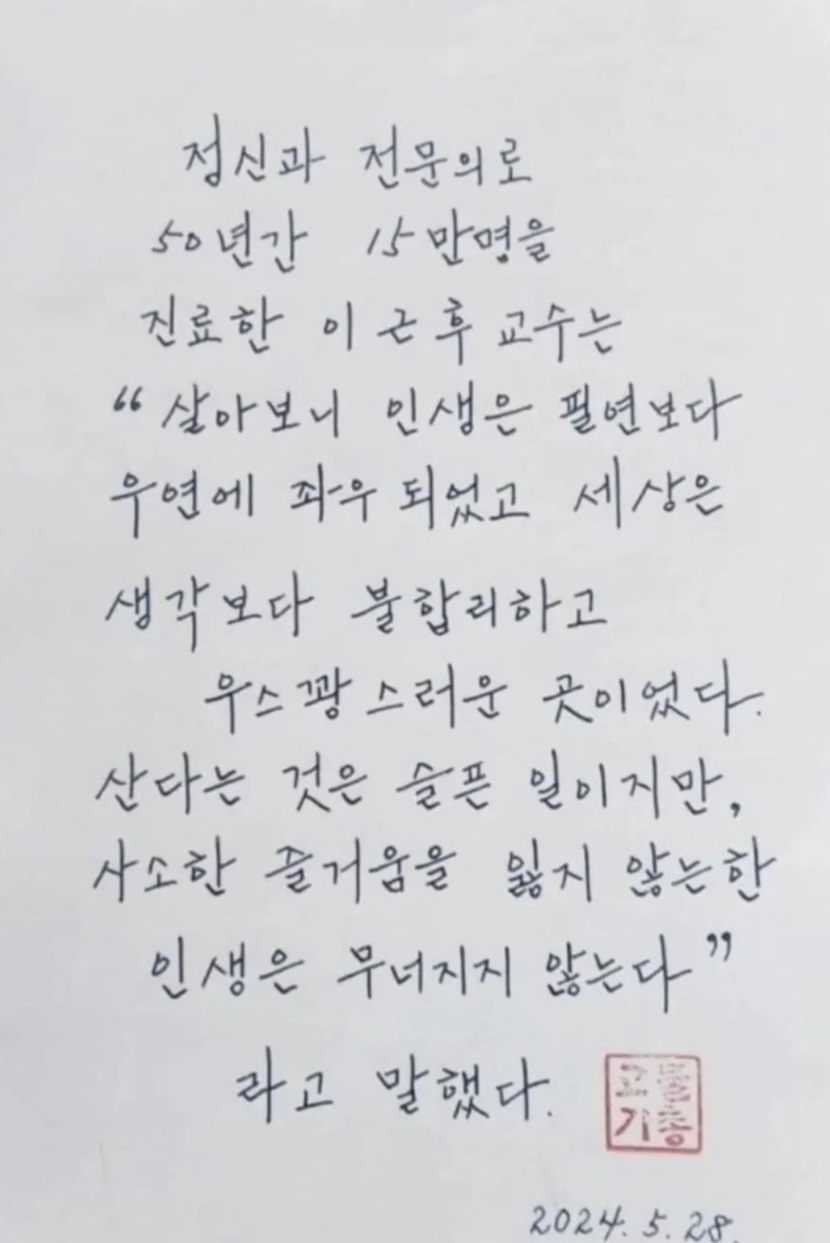 정신과 전문의로
50년간 15만명을
진료한 이근후 교수는
“살아보니 인생은 필연보다
우연에 좌우 되었고 세상은
생각보다 불합리하고
우스꽝스러운 곳이었다.
산다는 것은 슬픈 일이지만,
사소한 즐거움을 잃지 않는한
인생은 무너지지 않는다”
라고 말했다.
2024. 5. 28.